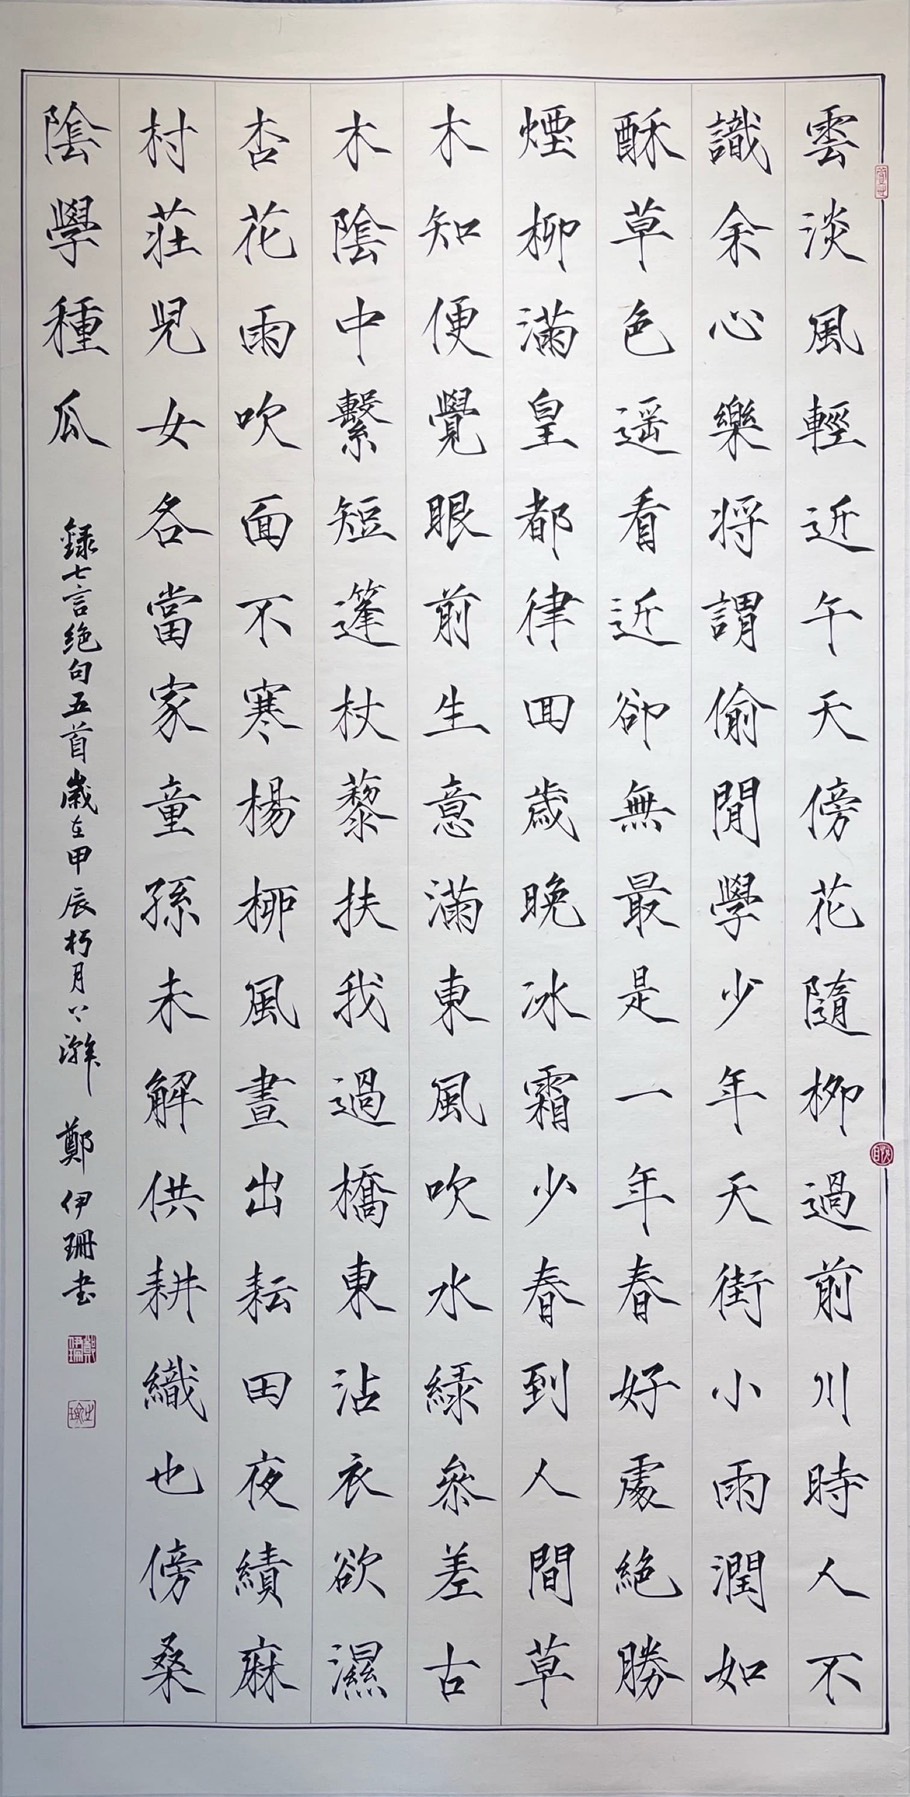 雲淡風輕近午天傍花隨柳過前川時人不
識余心樂將謂偷閒學少年天街小雨潤如
酥草色遥看近卻無最是一年春好處絕勝
煙柳滿皇都律回歲晚冰霜少春到人間草
木知便覺眼前生意滿東風吹水綠參差古
木陰中繫短篷杖藜扶我過橋東沾衣欲濕
杏花雨吹面不寒楊柳風晝出耘田夜績麻
村莊兒女各當家童孫未解供耕織也傍桑
陰學種瓜
錄七言绝句五首歲在甲辰 月 鄭伊珊书